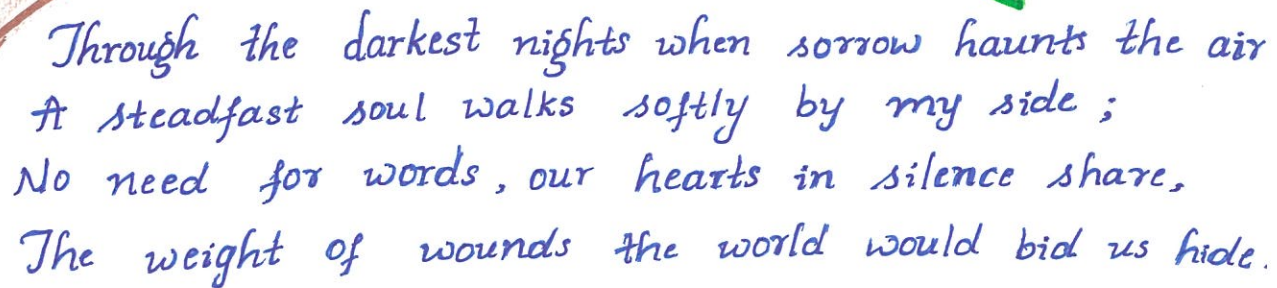 Through the darkest nights when sorrow haunts the air
A steadfast soul walks softly by my side ;
No need for words , our hearts in silence share,
The weight of wounds the world would bid us hide.